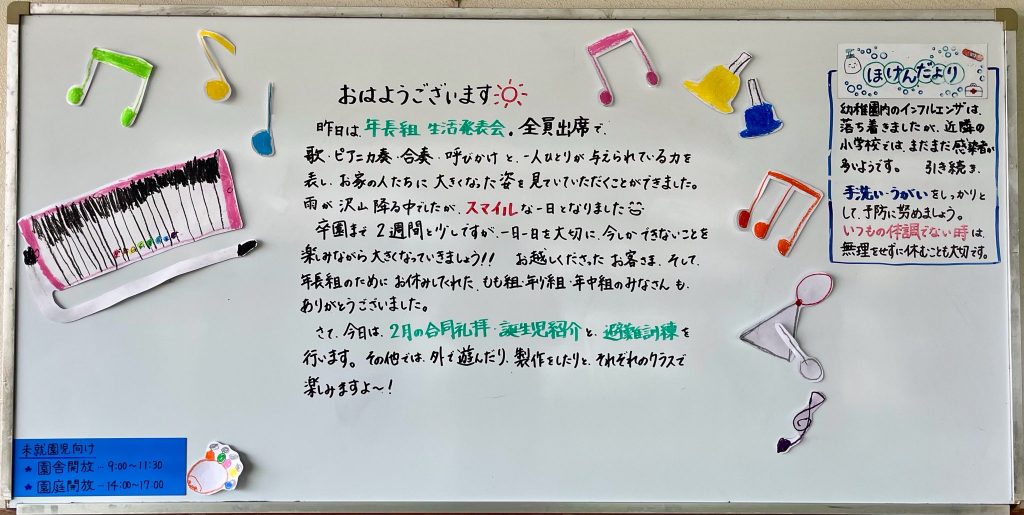 おはようございます
昨日は、年長組 生活発表会。全員出席で、
歌・ピアニカ奏・合奏・呼びかけ と、一人ひとりが与えられている力を
表し、お家の人たちに 大きくなった姿を見ていただくことができました。
雨が沢山降る中でしたが、スマイルな一日となりました
卒園まで 2週間と少しですが、一日一日を大切に、今しかできないことを
楽しみながら大きくなっていきましょう!! お越しくださったお客さま、そして、
年長組のために お休みしてくれた、もも組・年少組・年中組のみなさん も、
ありがとうございました。
さて、今日は、2月の合同礼拝・誕生児紹介と、避難訓練を
行います。その他では、外で遊んだり、製作をしたりと、それぞれのクラスで
楽しみますよ〜!
ほけんだより
幼稚園内のインフルエンザは、
落ち着きましたが、近隣の
小学校では、まだまだ感染者が
多いようです。 引き続き、
手洗い・うがいをしっかりと
して、予防に努めましょう。
いつもの体調でない時は、
無理をせずに休むことも大切です。
未就園児向け
★ 園舎開放…9:00〜11:30
★ 園庭開放…14:00〜17:00